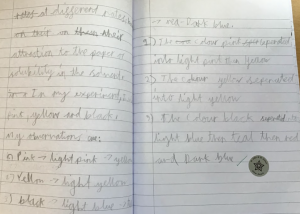 at different
on that on their
attraction to the paper or
solubility in the solvent.
In my experiment,
pink, yellow and black
my observations are:
1) Pink → light pink → yellow
2) Yellow → light yellow
3) black → light blue →
→ red → dark blue.
1) The colour pink separated
into light pink then yellow
2) The colour yellow separated
into light yellow
3) The colour black
light blue then teal then red
and Dark blue